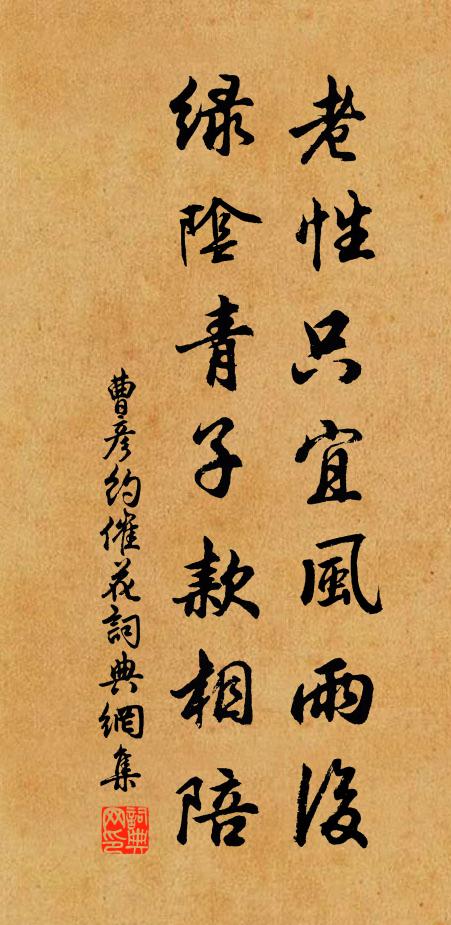 老性只宜風雨後
緑陰青子款相陪
曹彦約催花詞典網集
詞典网印